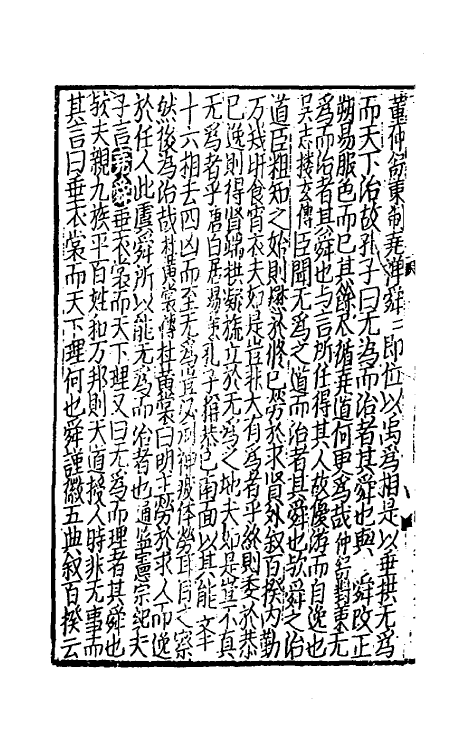 董仲舒策制堯禪舜二即位以禹為相是以垂拱无為
而天下治故孔子曰无為而治者其舜也與　舜改正
朔易服色而已其餘盡循堯道何更為哉仲舒對策无
為而治者其舜也與言所任得其人故優游而自逸也
吳志楼玄傳臣聞无為之道而治者其舜也欤舜之治
道臣粗知之始則懋於修已勞於求賢外叙百揆内勤
万幾旰食宵衣夫如是豈非大有為者乎終則委於恭
已逸則得賢端拱凝旒立於无為之地夫如是豈不真
无為者乎唐白居易策孔子稱恭已南面以其能文舉
十六相去四凶而至无為豈必刓神疲体勞耳目之察
然後為治哉杜黃裳傳杜黃裳曰明主勞於求人而逸
於任人此虞舜所以能无為而治者也通鑑憲宗紀夫
子言堯舜垂衣裳而天下理又曰无為而理者其舜也
欤夫親九族平百姓和万邦則天道授人時非无事而
其言曰垂衣裳而天下理何也舜謹徽五典叙百揆云